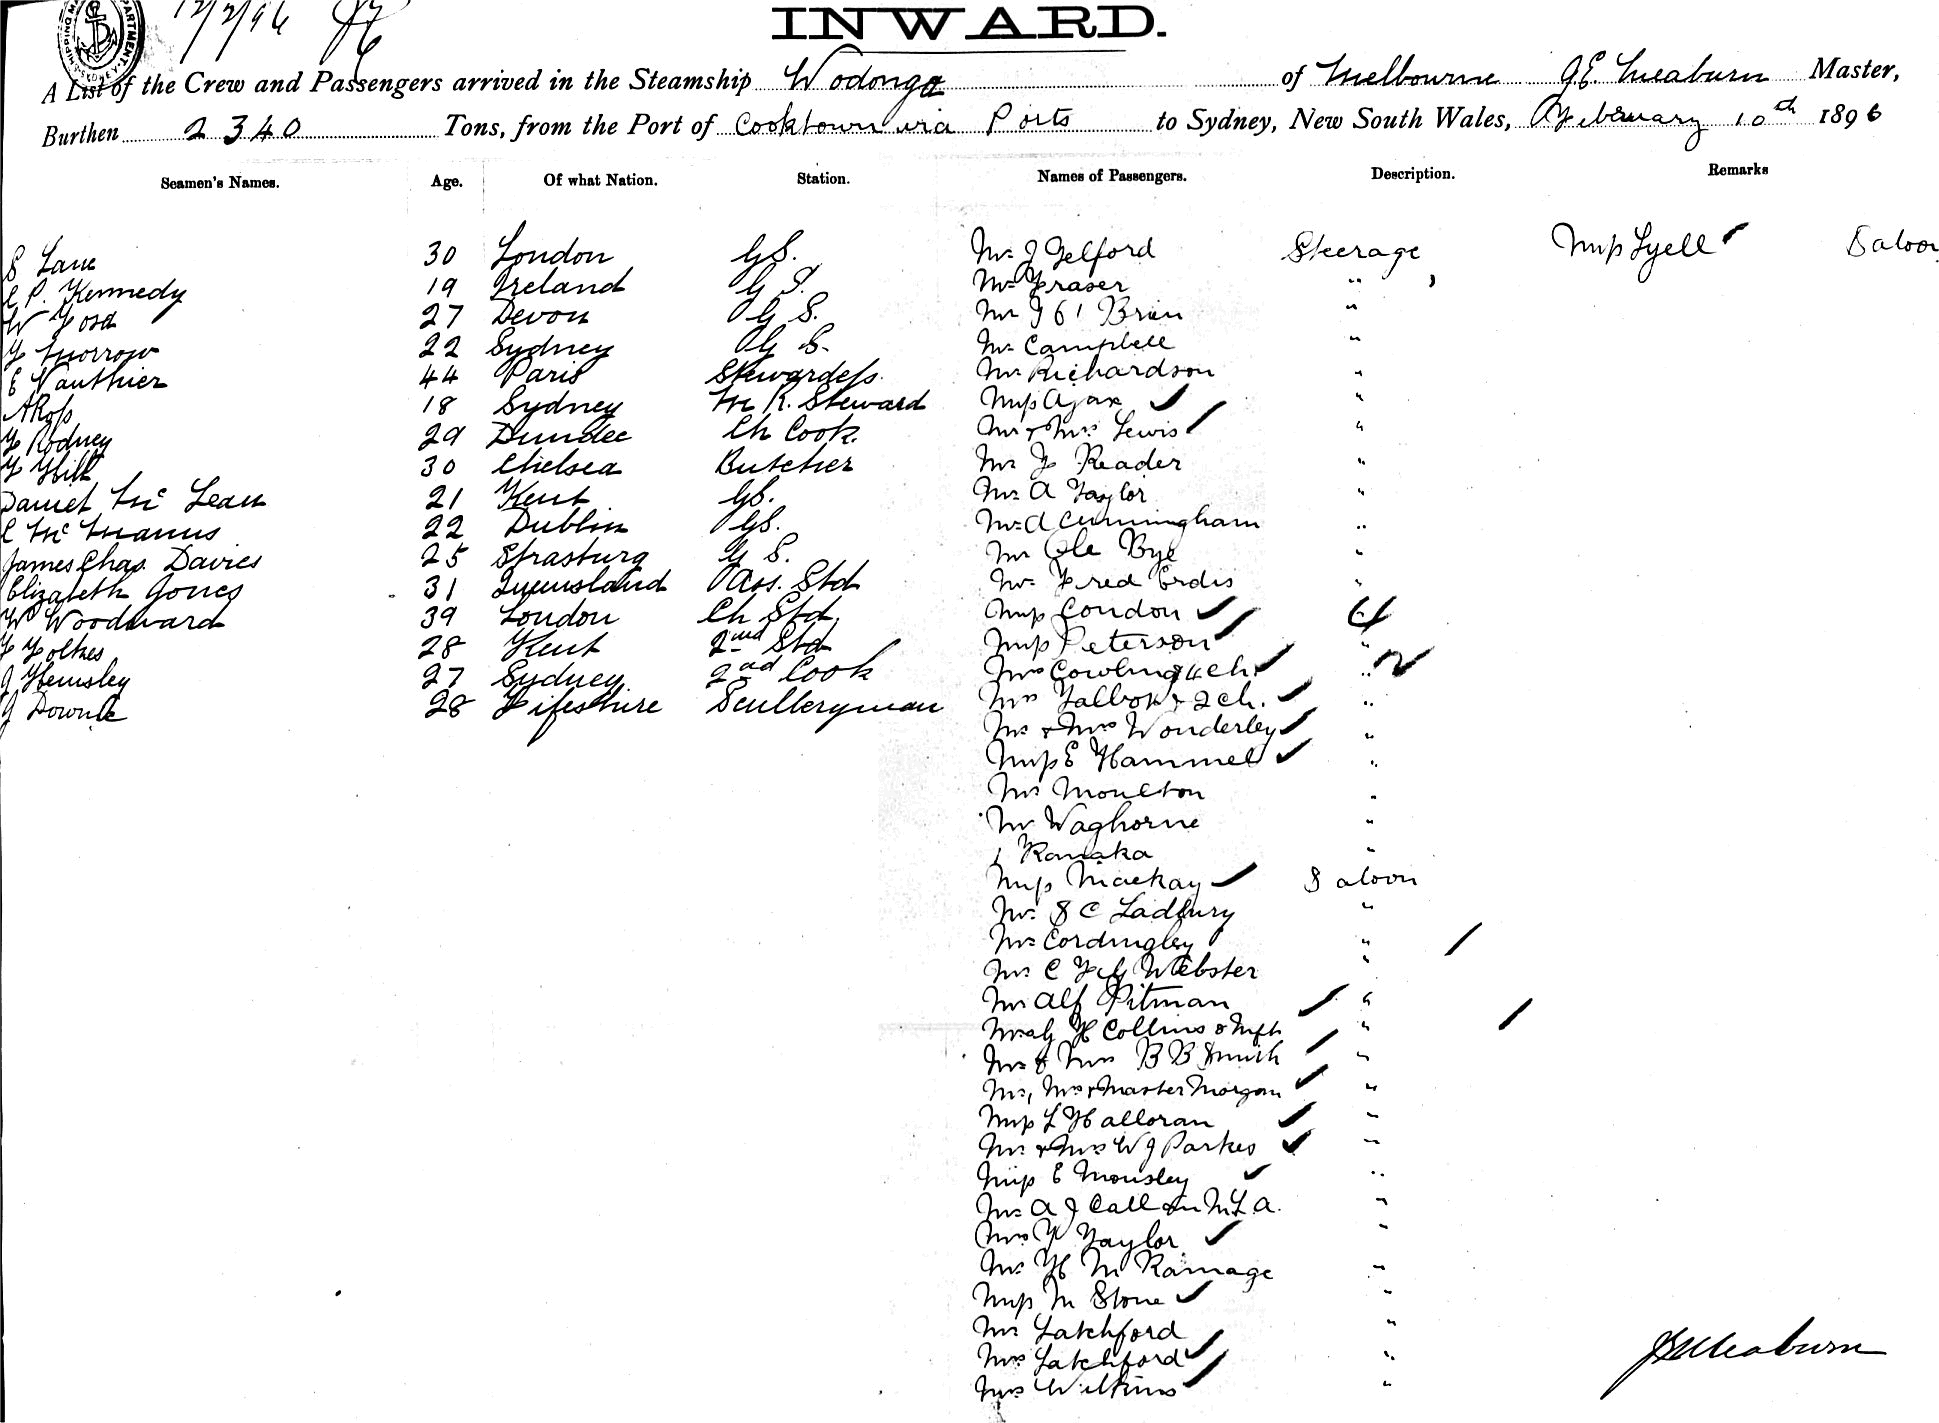 12/2/96
INWARD.
A List of the Crew and Passengers arrived in the Steamship Wodonga of Melbourne J.E. Meaburn Master,
Burthen 2340 Tons, from the Port of Cooktown via Ports to Sydney, New South Wales, February 10th 1896
Seamen's Names. Age. Of what Nation. Station. Names of Passengers. Description. Remarks
S Lane 30 London GS. Mr J Telford Steerage Miss Lyell Saloon
C P. Kennedy 19 Ireland G S. Mr Fraser "
W Ford 27 Devon G S. Mr J O'Brien "
F Morrow 22 Sydney G S. Mr Campbell "
E Vauthier 44 Paris Stewardess. Mr Richardson "
A Ross 18 Sydney M R. Steward Miss Ajax "
F Rodney 29 Dundee Ch Cook. Mr & Mrs Lewis "
F Hill 30 Chelsea Butcher Mr F Reader "
Daniel Mc Lean 21 Kent GS. Mr A Taylor "
C Mc Manus 22 Dublin GS. Mr A Cunningham "
James Chas. Davies 25 Strasburg G S. Mr Ole Bye "
Elizabeth Jones 31 Queensland Ass. Std Mr Fred Erdis "
W Woodward 39 London Ch Std. Miss Condon "
F Foltkes 28 Kent 2nd Std Miss Peterson "
J Hemsley 27 Sydney 2nd Cook Mrs Cowling & 4 ch. "
J Downie 28 Fifeshire Sculleryman Mrs Talbot & 2 ch. "
Mr & Mrs Wonderley "
Miss E Hammel "
Mr Moulton "
Mr Waghorne "
1 Kanaka "
Miss Mackay Saloon
Mr. S C Ladbury "
Mr Cordingley "
Mr C F G Webster "
Mr Alf Pitman "
Mr G H Collins & Wife "
Mr & Mrs B B Smith "
Mr, Mrs & Master Morgan "
Miss L Halloran "
Mr & Mrs W J Parkes "
Miss E Mousley "
Mr A J Callan M.L.A. "
Mrs F Taylor "
Mr H M Ramage "
Miss M Stone "
Mr Latchford "
Mrs Latchford "
Mrs Wilkins "
JE Meaburn